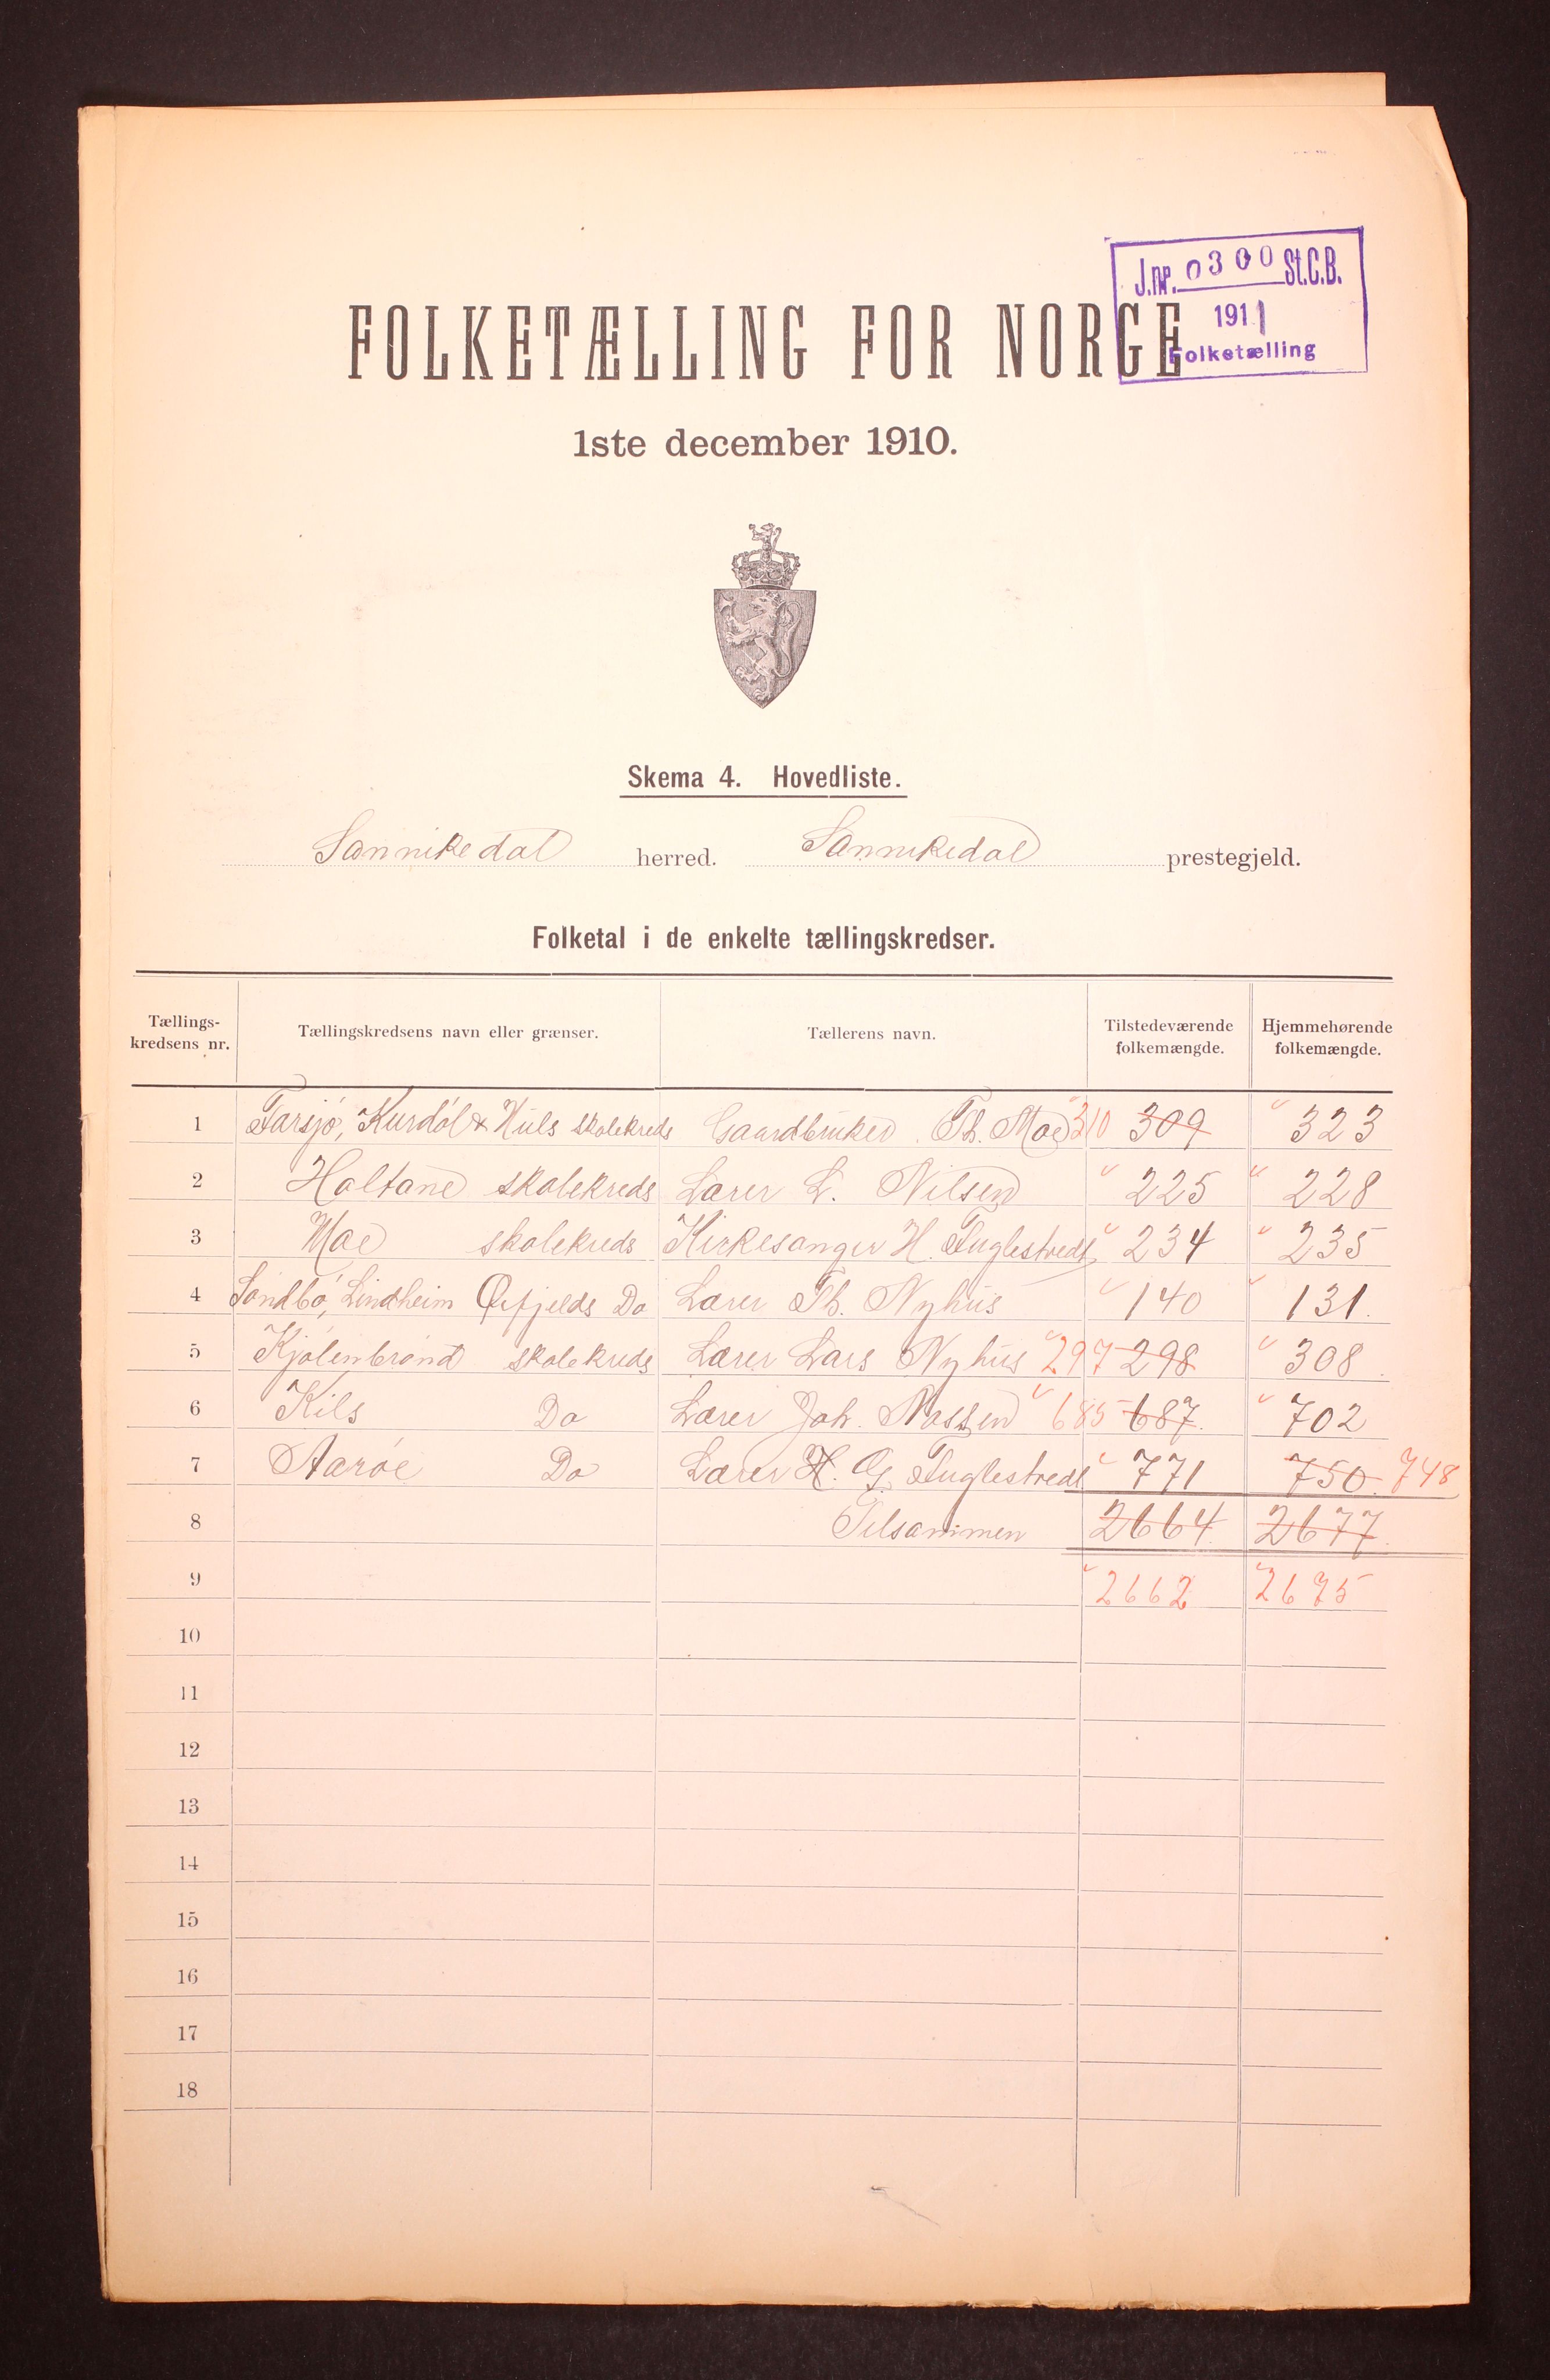 J.nr. 0300 St.C.B.
1911
Folketælling
FOLKETÆLLING FOR NORGE
1ste december 1910.
Skema 4. Hovedliste.
Sannikedal herred. Sannikedal prestegjeld.
Folketal i de enkelte tællingskredser.
Tællings-kredsens nr. Tællingskredsens navn eller grænser. Tællerens navn. Tilstedeværende folkemængde. Hjemmehørende folkemængde.
1 Farsjø, Kurdøl & Huls skolekreds Gaardbruker Th. Moe 310 309 323
2 Haltane skolekreds Lærer L. Nilsen 225 228
3 Moe skolekreds Kirkesanger H. Fuglestvedt 234 235
4 Sandbø, Lindheim Ørfjelds Do Lærer Th. Nyhus 140 131.
5 Kjølenbrønd skolekreds Lærer Lars Nyhus 297 298 308
6 Kils Do Lærer Joh. 685 687. 702
7 Aarøe Do Lærer H. G. Fuglestvedt 771 750. 748
8 Tilsammen 2664. 2677.
9 2662 2675
10
11
12
13
14
15
16
17
18